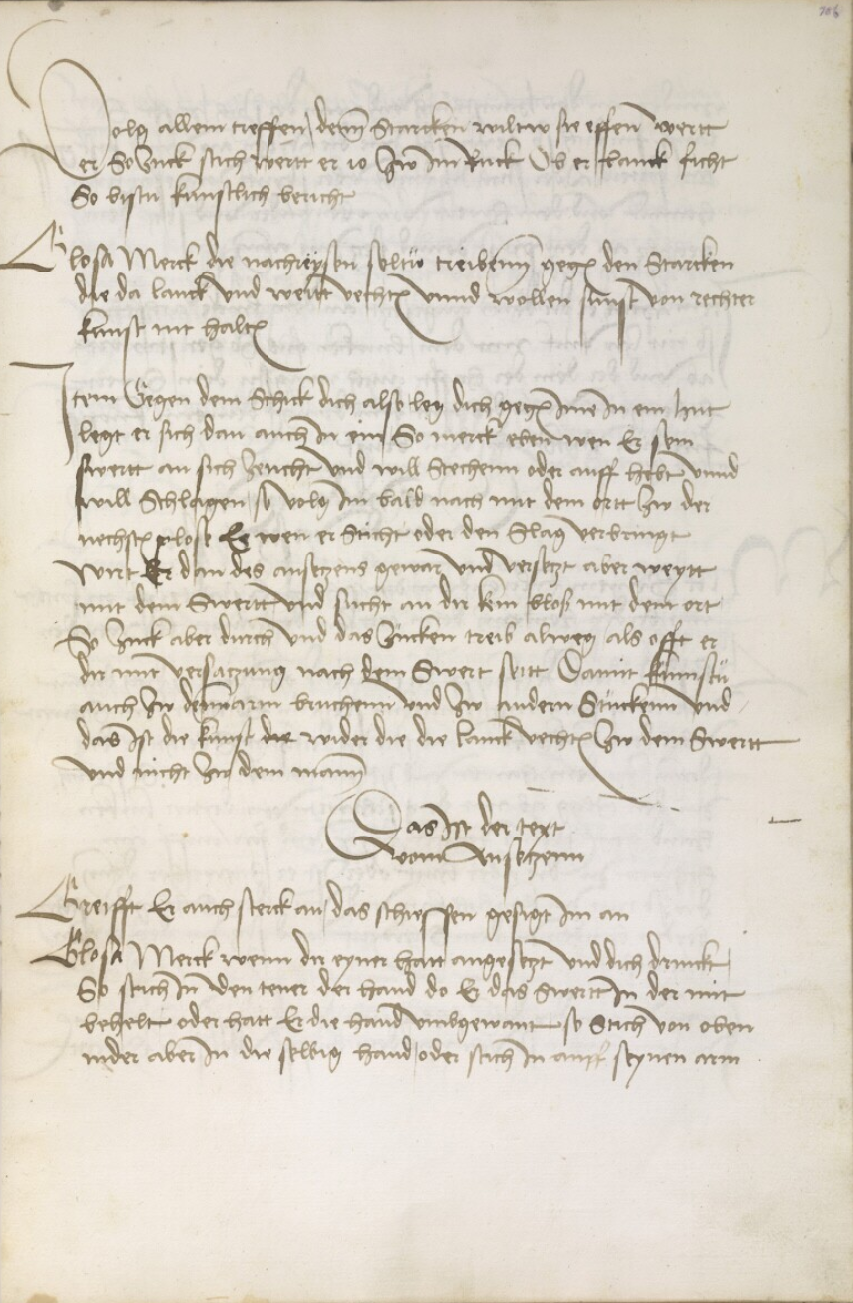 106
Volg allem treffen / dem Starcken wiltw sie effen wertt
er So Zuck stich wertt er io Zw im Ruck Ob er lanck ficht
So bistu künstlich bericht
Glosa Merck die nachreysen soltw treibenn gegen den Starcken
die da lanck und weitt vechten unnd wollen sunst von rechter
kunst nit halten
Item Gegen dem Schick dich also leg dich gegen ime In ein hut
legt er sich dan auch In ein So merck eben wen Er sein
swertt an sich Zeucht und will Stechenn oder auff hebt unnd
will Schlagen / so volg Im bald nach mit dem ortt Zw der
nechsten plosß Ee wen er Sticht oder den Slag verbringt
Wirt Er dan des ansetzens gewar und versetzt aber weytt
mit dem Swertt und sucht an dir kein bloß mit dem ort
So Zuck aber durch und das Zucken treib alweg als offt er
dir mit versatzung nach dem Swert seitt Damit kumstu
auch Zw den arm bruchenn und Zw andern Stuckenn und
das Ist die kunst die wider die die lanck vechten Zw dem Swertt
und nicht Zw dem mann
Das Ist der text
vom Ansetzenn
Greifft Er auch sterck an / das schiessen gesigt Im an
Glosa Merck wenn dir eyner hatt angesetzt und dich druckt /
So stich In In den tener der hand do Er das Swertt In der mit
behelt oder hatt Er die hand umbgewant so Stich von oben
nider aber In die selbig hand / oder stich In auff seynen arm